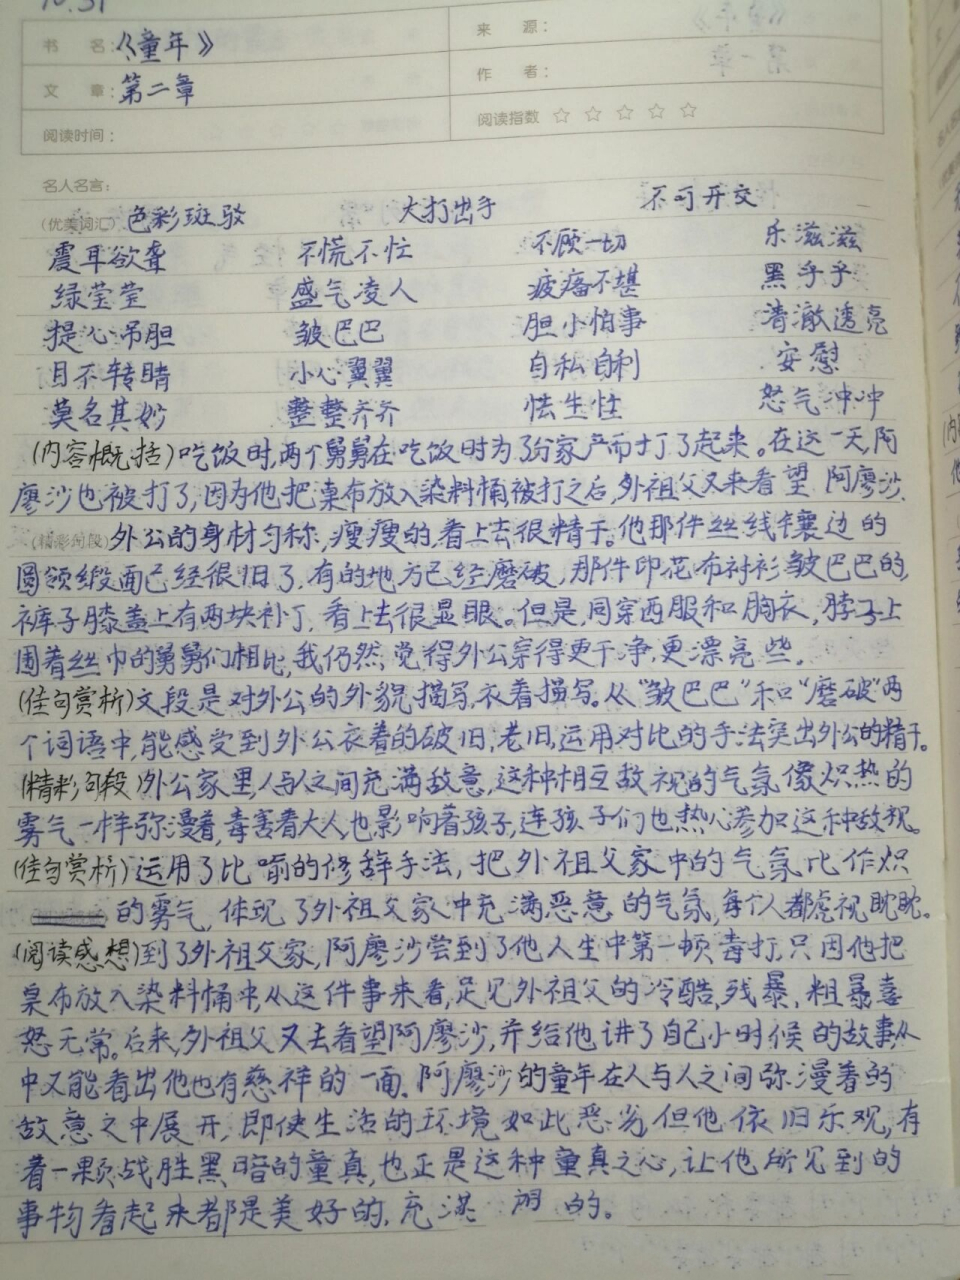 10.31
书 名：《童年》 来 源：
文 章：第二章 作 者：
阅读时间： 阅读指数 ☆ ☆ ☆ ☆ ☆
名人名言：
(优美词汇) 色彩斑驳 大打出手 不可开交
震耳欲聋 不慌不忙 不顾一切 乐滋滋
绿莹莹 盛气凌人 疲瘤不堪 黑乎乎
提心吊胆 皱巴巴 胆小怕事 清澈透亮
目不转睛 小心翼翼 自私自利 安慰
莫名其妙 整整齐齐 怯生性 怒气冲冲
(内容概括)吃饭时,两个舅舅在吃饭时为了分家产而打了起来。在这一天,阿
廖沙也被打了,因为他把桌布放入染料桶被打之后,外祖父又来看望 阿廖沙.
(精彩句段)外公的身材匀称,瘦瘦的,看上去很精干。他那件丝线镶边的
圆领缎面已经很旧了,有的地方已经磨破,那件印花布衬衫皱巴巴的,
裤子膝盖上有两块补丁,看上去很显眼。但是,同穿西服和胸衣,脖子上
围着丝巾的舅舅们相比,我仍然觉得外公穿得更干净,更漂亮些.
(佳句赏析)文段是对外公的外貌描写,衣着描写。从“皱巴巴”和“磨破”两
个词语中,能感受到外公衣着的破旧,老旧,运用对比的手法突出外公的精干。
(精彩句段)外公家里,人与人之间充满敌意,这种相互敌视的气氛像炽热的
雾气一样弥漫着,毒害着大人,也影响着孩子,连孩子们也热心参加这种敌视。
(佳句赏析)运用了比喻的修辞手法,把外祖父家中的气氛比作炽
的雾气,体现了外祖父家中充满恶意的气氛,每个人都虎视眈眈。
(阅读感想)到了外祖父家,阿廖沙尝到了他人生中第一顿毒打,只因他把
桌布放入染料桶中,从这件事来看,足见外祖父的冷酷,残暴,粗暴喜
怒无常。后来,外祖父又去看望阿廖沙,并给他讲了自己小时候的故事从
中又能看出他也有慈祥的一面.阿廖沙的童年在人与人之间弥漫着的
敌意之中展开,即使生活的环境如此恶劣但他依旧乐观,有
着一颗战胜黑暗的童真,也正是这种童真之心,让他所见到的
事物看起来都是美好的,充满 的。